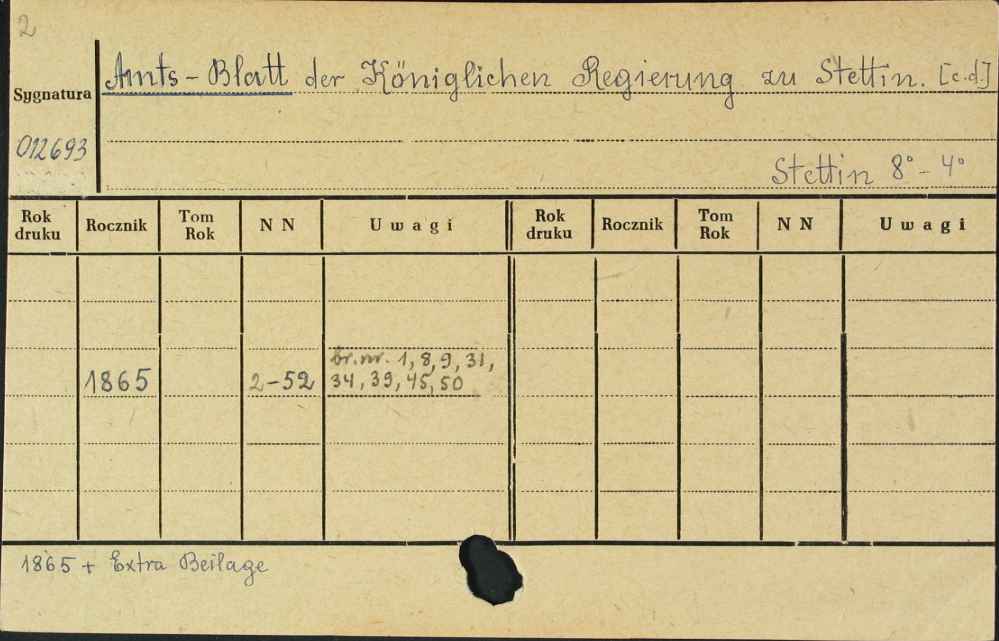 2
Amts-Blatt der Königlichen Regierung zu Stettin. [c.d.]
Sygnatura
012693
Stettin 8° - 4°
Rok druku Rocznik Tom Rok N N Uwagi Rok druku Rocznik Tom Rok N N Uwagi
br. nr. 1, 8, 9, 31,
1865 2-52 34, 39, 45, 50
1865 + Extra Beilage